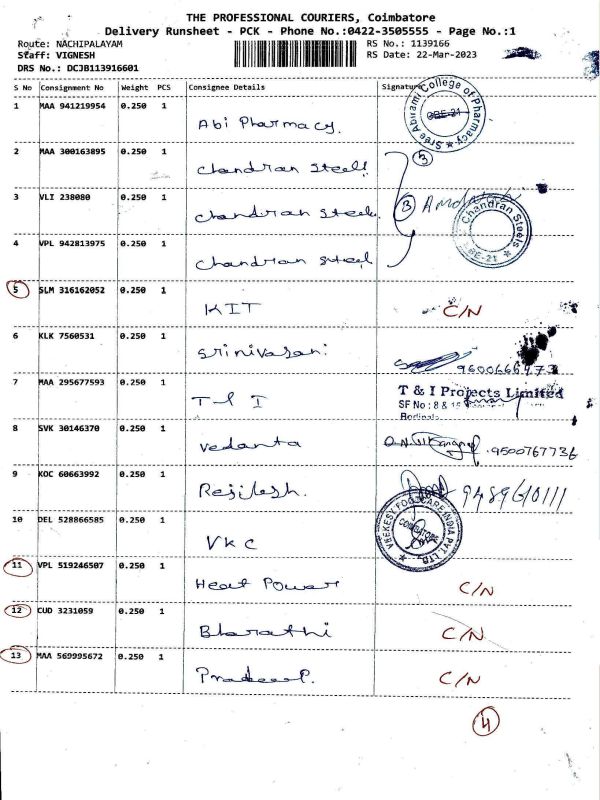 THE PROFESSIONAL COURIERS, Coimbatore
Delivery Runsheet - PCK - Phone No.:0422-3505555 - Page No.:1
Route: NACHIPALAYAM RS No.: 1139166
Staff: VIGNESH RS Date: 22-Mar-2023
DRS No.: DCJB113916601
S No Consignment No Weight PCS Consignee Details Signature
1 MAA 941219954 0.250 1 Abi Pharmacy. Sree Abirami College of Pharmacy CBE-21
2 MAA 300163895 0.250 1 Chandran Steels
3 VLI 238080 0.250 1 Chandran Steels 3 Chandran Steels CBE-21
4 VPL 942813975 0.250 1 Chandran steel
5 SLM 316162052 0.250 1 KIT C/N
6 KLK 7560531 0.250 1 Srinivasan 9600666973
7 MAA 295677593 0.250 1 T & I T & I Projects Limited
SF No : 8 &
8 SVK 30146370 0.250 1 Vedanta 9500767736
9 KOC 60663992 0.250 1 Rejilesh. 9489610111
10 DEL 528866585 0.250 1 VKC VEEKESY FOOTCARE INDIA PVT. LTD. COIMBATORE
11 VPL 519246507 0.250 1 Heat Power C/N
12 CUD 3231059 0.250 1 Bharathi C/N
13 MAA 569995672 0.250 1 Pradeep P. C/N
4